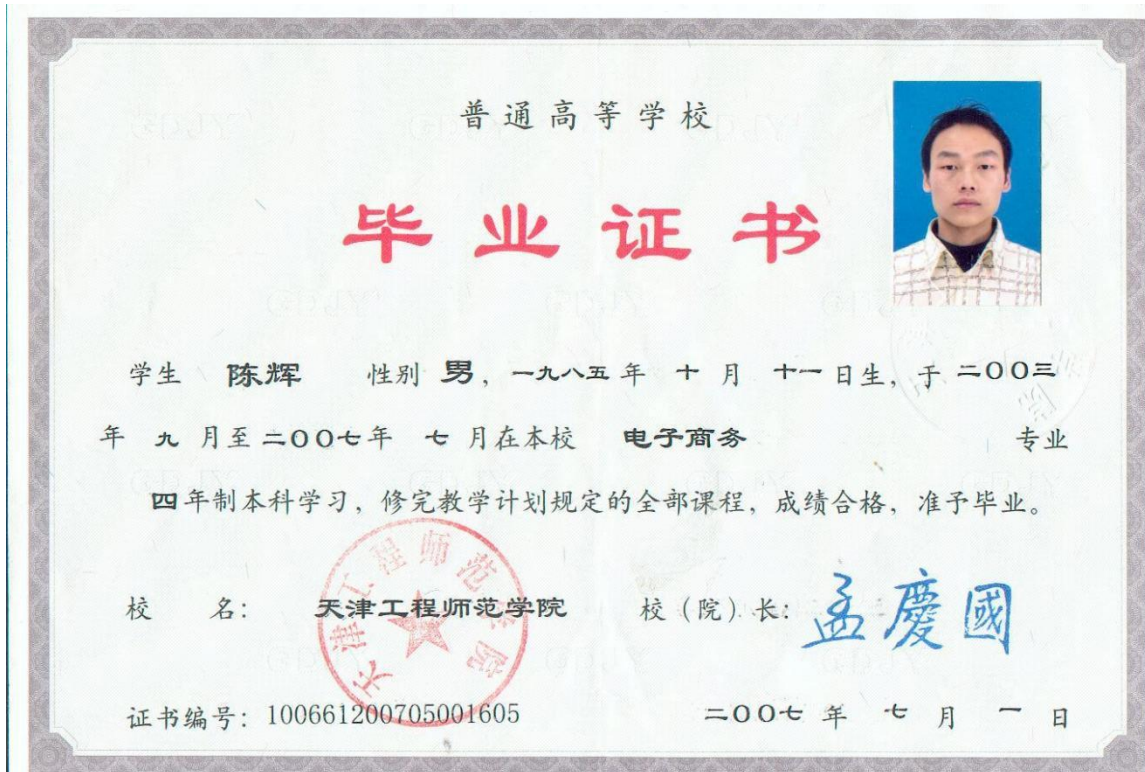 普通高等学校
毕业证书
学生 陈辉 性别 男，一九八五年 十 月 十一 日生，于 二00三
年 九 月至 二00七年 七 月在本校 电子商务 专业
四年制本科学习，修完教学计划规定的全部课程，成绩合格，准予毕业。
校 名：天津工程师范学院 校（院）长：孟慶國
天津工程师范学院
证书编号：100661200705001605 二00七 年 七 月 一 日